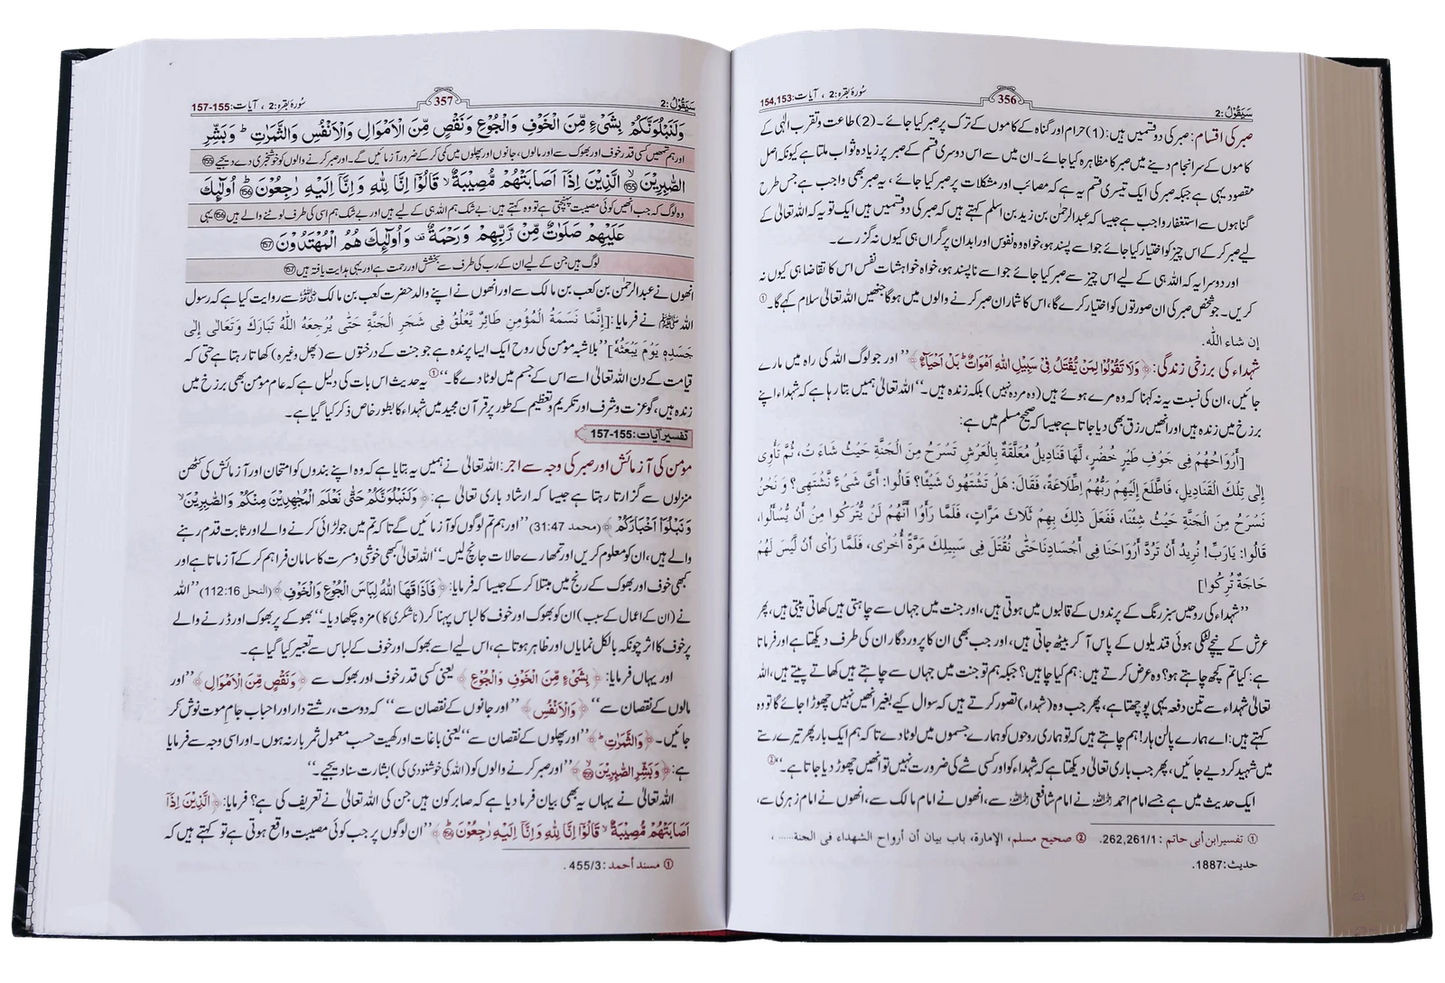 سَیَقُوْلُ:2
356
سُورۂ بقرہ:2 ، آیات:154,153
صبر کی اقسام: صبر کی دو قسمیں ہیں: (1) حرام اور گناہ کے کاموں کے ترک پر صبر کیا جائے۔ (2) طاعت و تقرب الٰہی کے
کاموں کے سرانجام دینے میں صبر کا مظاہرہ کیا جائے۔ ان میں سے اس دوسری قسم کے صبر پر زیادہ ثواب ملتا ہے کیونکہ اصل
مقصود یہی ہے جبکہ صبر کی ایک تیسری قسم یہ ہے کہ مصائب اور مشکلات پر صبر کیا جائے، یہ صبر بھی واجب ہے جس طرح
گناہوں سے استغفار واجب ہے جیسا کہ عبدالرحمٰن بن زید بن اسلم کہتے ہیں کہ صبر کی دو قسمیں ہیں ایک تو یہ کہ اللہ تعالیٰ کے
لیے صبر کر کے اس چیز کو اختیار کیا جائے جو اسے پسند ہو، خواہ وہ نفوس اور ابدان پر گراں ہی کیوں نہ گزرے۔
اور دوسرا یہ کہ اللہ ہی کے لیے اس چیز سے صبر کیا جائے جو اسے ناپسند ہو، خواہ خواہشات نفس اس کا تقاضا ہی کیوں نہ
کریں۔ جو شخص صبر کی ان صورتوں کو اختیار کرے گا، اس کا شمار ان صبر کرنے والوں میں ہو گا جنھیں اللہ تعالیٰ سلام کہے گا۔①
إن شاء اللّٰه.
شہداء کی برزخی زندگی: ﴿وَلَا تَقُوْلُوْا لِمَنْ یُّقْتَلُ فِیْ سَبِیْلِ اللّٰهِ اَمْوَاتٌ ؕ بَلْ اَحْیَآءٌ﴾ ”اور جو لوگ اللہ کی راہ میں مارے
جائیں، ان کی نسبت یہ نہ کہنا کہ وہ مرے ہوئے ہیں (وہ مردہ نہیں) بلکہ زندہ ہیں۔“ اللہ تعالیٰ ہمیں بتا رہا ہے کہ شہداء اپنے
برزخ میں زندہ ہیں اور انھیں رزق بھی دیا جاتا ہے جیسا کہ صحیح مسلم میں ہے:
[أَرْوَاحُهُمْ فِی جَوْفِ طَیْرٍ خُضْرٍ، لَّهَا قَنَادِیلُ مُعَلَّقَةٌ بِالْعَرْشِ تَسْرَحُ مِنَ الْجَنَّةِ حَیْثُ شَاءَ تْ، ثُمَّ تَأْوِی
إِلٰی تِلْكَ الْقَنَادِیلِ، فَاطَّلَعَ إِلَیْهِمْ رَبُّهُمُ إِطِّلَاعَةً، فَقَالَ: هَلْ تَشْتَهُونَ شَیْئًا؟ قَالُوا: أَیَّ شَیْ ءٍ نَّشْتَهِی؟ وَ نَحْنُ
نَسْرَحُ مِنَ الْجَنَّةِ حَیْثُ شِئْنَا، فَفَعَلَ ذٰلِكَ بِهِمْ ثَلَاثَ مَرَّاتٍ، فَلَمَّا رَأَوْا أَنَّهُمْ لَنْ یُّتْرَكُوا مِنْ أَنْ یُّسْأَلُوا،
قَالُوا: یَارَبِّ! نُرِیدُ أَنْ تَرُدَّ أَرْوَاحَنَا فِی أَجْسَادِنَا حَتّٰی نُقْتَلَ فِی سَبِیلِكَ مَرَّةً أُخْرٰی، فَلَمَّا رَاٰی أَنْ لَّیْسَ لَهُمْ
حَاجَةٌ تُرِكُوا]
”شہداء کی روحیں سبز رنگ کے پرندوں کے قالبوں میں ہوتی ہیں، اور جنت میں جہاں سے چاہتی ہیں کھاتی پیتی ہیں، پھر
عرش کے نیچے لٹکی ہوئی قندیلوں کے پاس آ کر بیٹھ جاتی ہیں، اور جب بھی ان کا پروردگار ان کی طرف دیکھتا ہے اور فرماتا
ہے: کیا تم کچھ چاہتے ہو؟ وہ عرض کرتے ہیں: ہم کیا چاہیں؟ جبکہ ہم تو جنت میں جہاں سے چاہتے ہیں کھاتے پیتے ہیں، اللہ
تعالیٰ شہداء سے تین دفعہ یہی پوچھتا ہے، پھر جب وہ (شہداء) تصور کرتے ہیں کہ سوال کیے بغیر انھیں نہیں چھوڑا جائے گا تو وہ
کہتے ہیں: اے ہمارے پالن ہار! ہم چاہتے ہیں کہ تو ہماری روحوں کو ہمارے جسموں میں لوٹا دے تا کہ ہم ایک بار پھر تیرے رستے
میں شہید کر دیے جائیں، پھر جب باری تعالیٰ دیکھتا ہے کہ شہداء کو اور کسی شے کی ضرورت نہیں تو انھیں چھوڑ دیا جاتا ہے۔“②
ایک حدیث میں ہے جسے امام احمد رحمہ اللہ نے امام شافعی رحمہ اللہ سے، انھوں نے امام مالک سے، انھوں نے امام زہری سے،
① تفسیر ابن أبی حاتم : 262,261/1. ② صحیح مسلم، الإمارة، باب بیان أن أرواح الشهداء فی الجنة......،
حدیث:1887.
سَیَقُوْلُ:2
357
سُورۂ بقرہ:2 ، آیات:157-155
وَلَنَبْلُوَنَّكُمْ بِشَیْءٍ مِّنَ الْخَوْفِ وَالْجُوْعِ وَنَقْصٍ مِّنَ الْاَمْوَالِ وَالْاَنْفُسِ وَالثَّمَرٰتِ ؕ وَبَشِّرِ
اور ہم تمھیں کسی قدر خوف اور بھوک سے اور مالوں، جانوں اور پھلوں میں کمی کر کے ضرور آزمائیں گے۔ اور صبر کرنے والوں کو خوشخبری دے دیجیے ⑮⑤
الصّٰبِرِیْنَ ۙ۝155 الَّذِیْنَ اِذَاۤ اَصَابَتْهُمْ مُّصِیْبَةٌ ۙ قَالُوْۤا اِنَّا لِلّٰهِ وَاِنَّاۤ اِلَیْهِ رٰجِعُوْنَ ؕ۝156 اُولٰٓىِٕكَ
وہ لوگ کہ جب انھیں کوئی مصیبت پہنچتی ہے تو وہ کہتے ہیں: بے شک ہم اللہ ہی کے لیے ہیں اور بے شک ہم اسی کی طرف لوٹنے والے ہیں 156 یہی
عَلَیْهِمْ صَلَوٰتٌ مِّنْ رَّبِّهِمْ وَرَحْمَةٌ ۫ وَاُولٰٓىِٕكَ هُمُ الْمُهْتَدُوْنَ ۝157
لوگ ہیں جن کے لیے ان کے رب کی طرف سے بخشش اور رحمت ہے اور یہی ہدایت یافتہ ہیں 157
انھوں نے عبدالرحمٰن بن کعب بن مالک سے اور انھوں نے اپنے والد حضرت کعب بن مالک رضی اللہ عنہ سے روایت کیا ہے کہ رسول
اللہ ﷺ نے فرمایا: [إِنَّمَا نَسَمَةُ الْمُؤْمِنِ طَائِرٌ یَّعْلُقُ فِی شَجَرِ الْجَنَّةِ حَتّٰی یُرْجِعَهُ اللّٰهُ تَبَارَكَ وَتَعَالٰی إِلٰی
جَسَدِهِ یَوْمَ یَبْعَثُهُ] ”بلاشبہ مومن کی روح ایک ایسا پرندہ ہے جو جنت کے درختوں سے (پھل وغیرہ) کھاتا رہتا ہے حتی کہ
قیامت کے دن اللہ تعالیٰ اسے اس کے جسم میں لوٹا دے گا۔“① یہ حدیث اس بات کی دلیل ہے کہ عام مومن بھی برزخ میں
زندہ ہیں، گو عزت و شرف اور تکریم و تعظیم کے طور پر قرآن مجید میں شہداء کا بطور خاص ذکر کیا گیا ہے۔
تفسیر آیات:157-155
مومن کی آزمائش اور صبر کی وجہ سے اجر: اللہ تعالیٰ نے ہمیں یہ بتایا ہے کہ وہ اپنے بندوں کو امتحان اور آزمائش کی کٹھن
منزلوں سے گزارتا رہتا ہے جیسا کہ ارشاد باری تعالیٰ ہے: ﴿وَلَنَبْلُوَنَّكُمْ حَتّٰی نَعْلَمَ الْمُجٰهِدِیْنَ مِنْكُمْ وَالصّٰبِرِیْنَ ۙ
وَنَبْلُوَا۟ اَخْبَارَكُمْ﴾ (محمد 31:47) ”اور ہم تم لوگوں کو آزمائیں گے تا کہ تم میں جو لڑائی کرنے والے اور ثابت قدم رہنے
والے ہیں، ان کو معلوم کریں اور تمھارے حالات جانچ لیں۔“ اللہ تعالیٰ بھی خوشی و مسرت کا سامان فراہم کر کے آزماتا ہے اور
کبھی خوف اور بھوک کے رنج میں مبتلا کر کے جیسا کہ فرمایا: ﴿فَاَذَاقَهَا اللّٰهُ لِبَاسَ الْجُوْعِ وَالْخَوْفِ﴾ (النحل 112:16) ”اللہ
نے (ان کے اعمال کے سبب) ان کو بھوک اور خوف کا لباس پہنا کر (ناشکری کا) مزہ چکھا دیا۔“ بھوکے پر بھوک اور ڈرنے والے
پر خوف کا اثر چونکہ بالکل نمایاں اور ظاہر ہوتا ہے، اس لیے اسے بھوک اور خوف کے لباس سے تعبیر کیا گیا ہے۔
اور یہاں فرمایا: ﴿بِشَیْءٍ مِّنَ الْخَوْفِ وَالْجُوْعِ﴾ یعنی کسی قدر خوف اور بھوک سے ﴿وَنَقْصٍ مِّنَ الْاَمْوَالِ﴾ ”اور
مالوں کے نقصان سے“ ﴿وَالْاَنْفُسِ﴾ ”اور جانوں کے نقصان سے“ کہ دوست، رشتے دار اور احباب جامِ موت نوش کر
جائیں۔ ﴿وَالثَّمَرٰتِ ؕ﴾ ”اور پھلوں کے نقصان سے“ یعنی باغات اور کھیت حسب معمول ثمربار نہ ہوں۔ اور اسی وجہ سے فرمایا
ہے: ﴿وَبَشِّرِ الصّٰبِرِیْنَ ۝155﴾ ”اور صبر کرنے والوں کو (اللہ کی خوشنودی کی) بشارت سنا دیجیے۔“
اللہ تعالیٰ نے یہاں یہ بھی بیان فرما دیا ہے کہ صابر کون ہیں جن کی اللہ تعالیٰ نے تعریف کی ہے؟ فرمایا: ﴿الَّذِیْنَ اِذَاۤ
اَصَابَتْهُمْ مُّصِیْبَةٌ ۙ قَالُوْۤا اِنَّا لِلّٰهِ وَاِنَّاۤ اِلَیْهِ رٰجِعُوْنَ ؕ۝156﴾ ”ان لوگوں پر جب کوئی مصیبت واقع ہوتی ہے تو کہتے ہیں کہ
① مسند أحمد : 455/3 .